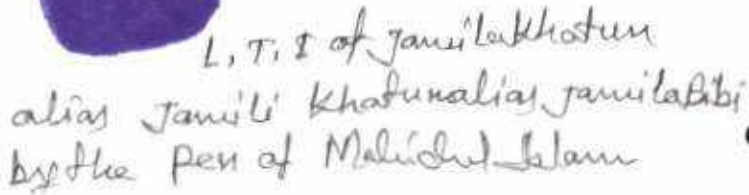 L, T, I of JamilaKhatun
alias Jamili Khatunalias JamilaBibi
by the Pen of Mahidul Islam